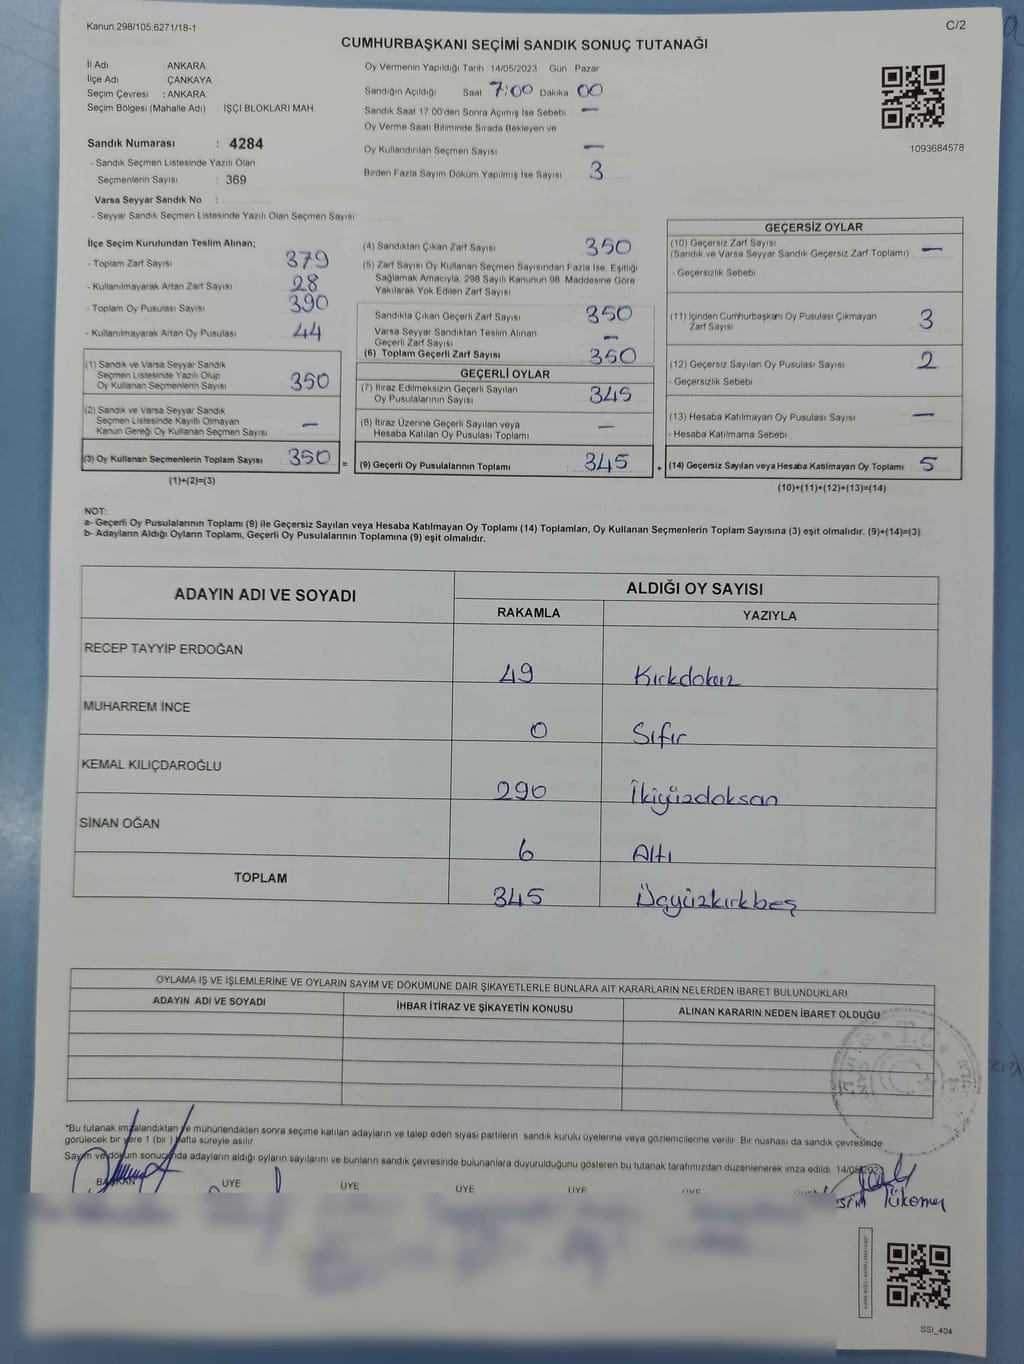 Kanun:298/105,6271/18-1
C/2
CUMHURBAŞKANI SEÇİMİ SANDIK SONUÇ TUTANAĞI
İl Adı : ANKARA
İlçe Adı : ÇANKAYA
Seçim Çevresi : ANKARA
Seçim Bölgesi (Mahalle Adı) : İŞÇİ BLOKLARI MAH
Sandık Numarası : 4284
- Sandık Seçmen Listesinde Yazılı Olan
Seçmenlerin Sayısı : 369
Varsa Seyyar Sandık No :
- Seyyar Sandık Seçmen Listesinde Yazılı Olan Seçmen Sayısı
Oy Vermenin Yapıldığı Tarih : 14/05/2023 Gün : Pazar
Sandığın Açıldığı Saat 7:00 Dakika 00
Sandık Saat 17.00'den Sonra Açılmış İse Sebebi —
Oy Verme Saati Bitiminde Sırada Bekleyen ve
Oy Kullandırılan Seçmen Sayısı —
Birden Fazla Sayım Döküm Yapılmış İse Sayısı 3
1093684578
İlçe Seçim Kurulundan Teslim Alınan;
- Toplam Zarf Sayısı 379
- Kullanılmayarak Artan Zarf Sayısı 28
- Toplam Oy Pusulası Sayısı 390
- Kullanılmayarak Artan Oy Pusulası 44
(1) Sandık ve Varsa Seyyar Sandık
Seçmen Listesinde Yazılı Olup
Oy Kullanan Seçmenlerin Sayısı 350
(2) Sandık ve Varsa Seyyar Sandık
Seçmen Listesinde Kayıtlı Olmayan
Kanun Gereği Oy Kullanan Seçmen Sayısı —
(3) Oy Kullanan Seçmenlerin Toplam Sayısı 350 =
(1)+(2)=(3)
(4) Sandıktan Çıkan Zarf Sayısı 350
(5) Zarf Sayısı Oy Kullanan Seçmen Sayısından Fazla İse, Eşitliği
Sağlamak Amacıyla, 298 Sayılı Kanunun 98. Maddesine Göre
Yakılarak Yok Edilen Zarf Sayısı
Sandıkta Çıkan Geçerli Zarf Sayısı 350
Varsa Seyyar Sandıktan Teslim Alınan
Geçerli Zarf Sayısı —
(6) Toplam Geçerli Zarf Sayısı 350
GEÇERLİ OYLAR
(7) İtiraz Edilmeksizin Geçerli Sayılan
Oy Pusulalarının Sayısı 345
(8) İtiraz Üzerine Geçerli Sayılan veya
Hesaba Katılan Oy Pusulası Toplamı —
(9) Geçerli Oy Pusulalarının Toplamı : 345 +
GEÇERSİZ OYLAR
(10) Geçersiz Zarf Sayısı
(Sandık ve Varsa Seyyar Sandık Geçersiz Zarf Toplamı) —
- Geçersizlik Sebebi
(11) İçinden Cumhurbaşkanı Oy Pusulası Çıkmayan
Zarf Sayısı 3
(12) Geçersiz Sayılan Oy Pusulası Sayısı 2
- Geçersizlik Sebebi
(13) Hesaba Katılmayan Oy Pusulası Sayısı —
- Hesaba Katılmama Sebebi
(14) Geçersiz Sayılan veya Hesaba Katılmayan Oy Toplamı : 5
(10)+(11)+(12)+(13)=(14)
NOT:
a- Geçerli Oy Pusulalarının Toplamı (9) ile Geçersiz Sayılan veya Hesaba Katılmayan Oy Toplamı (14) Toplamları, Oy Kullanan Seçmenlerin Toplam Sayısına (3) eşit olmalıdır. (9)+(14)=(3)
b- Adayların Aldığı Oyların Toplamı, Geçerli Oy Pusulalarının Toplamına (9) eşit olmalıdır.
ADAYIN ADI VE SOYADI
ALDIĞI OY SAYISI
RAKAMLA YAZIYLA
RECEP TAYYİP ERDOĞAN 49 Kırkdokuz
MUHARREM İNCE 0 Sıfır
KEMAL KILIÇDAROĞLU 290 İkiyüzdoksan
SİNAN OĞAN 6 Altı
TOPLAM 345 Üçyüzkırkbeş
OYLAMA İŞ VE İŞLEMLERİNE VE OYLARIN SAYIM VE DÖKÜMÜNE DAİR ŞİKAYETLERLE BUNLARA AİT KARARLARIN NELERDEN İBARET BULUNDUKLARI
ADAYIN ADI VE SOYADI İHBAR İTİRAZ VE ŞİKAYETİN KONUSU ALINAN KARARIN NEDEN İBARET OLDUĞU
*Bu tutanak imzalandıktan ve mühürlendikten sonra seçime katılan adayların ve talep eden siyasi partilerin sandık kurulu üyelerine veya gözlemcilerine verilir. Bir nüshası da sandık çevresinde
görülecek bir yere 1 (bir ) hafta süreyle asılır.
Sayım ve döküm sonucunda adayların aldığı oyların sayılarını ve bunların sandık çevresinde bulunanlara duyurulduğunu gösteren bu tutanak tarafımızdan düzenlenerek imza edildi. 14/05/2023
BAŞKAN ÜYE ÜYE ÜYE ÜYE ÜYE
Tükenmez
SSI_404